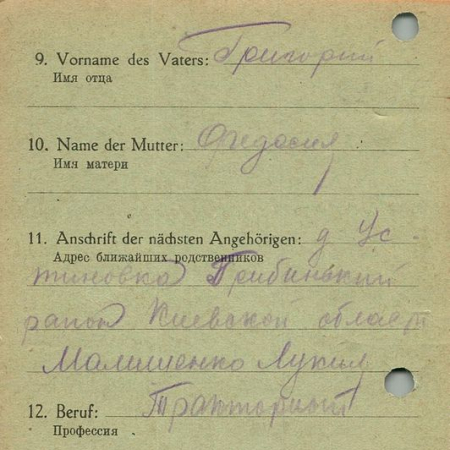 9. Vorname des Vaters: Григорий
Имя отца
10. Name der Mutter: Федосия
Имя матери
11. Anschrift der nächsten Angehörigen: д Ус-
Адрес ближайших родственников
тиновка Гребинький
район Киевской област
Малишенко Лукия
12. Beruf: Тракторный
Профессия